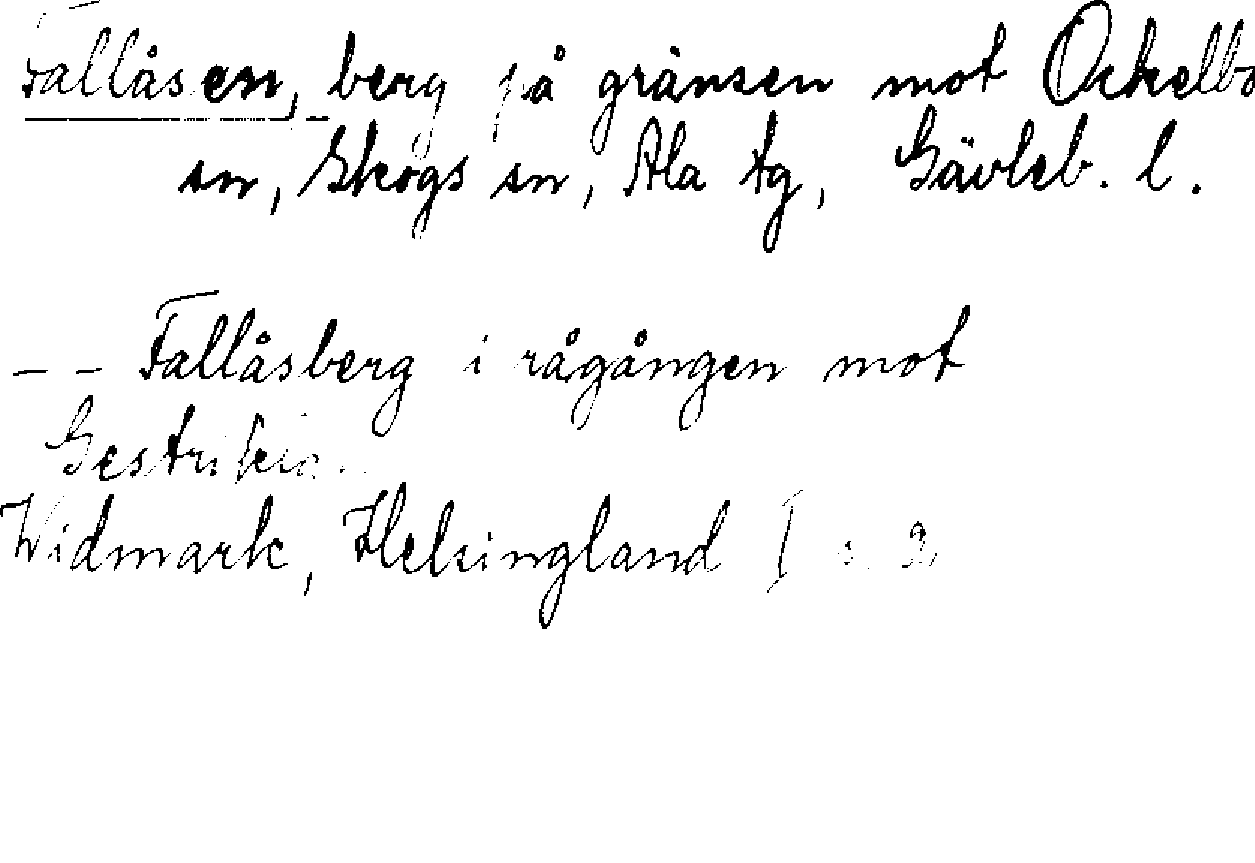 Fallåsen, berg på gränsen mot Ockelbo
sn, Skogs sn, Ala tg, Gävleb. l.
– – Fallåsberg i rågången mot
Gestrikia.
Widmark, Helsingland I s. 2